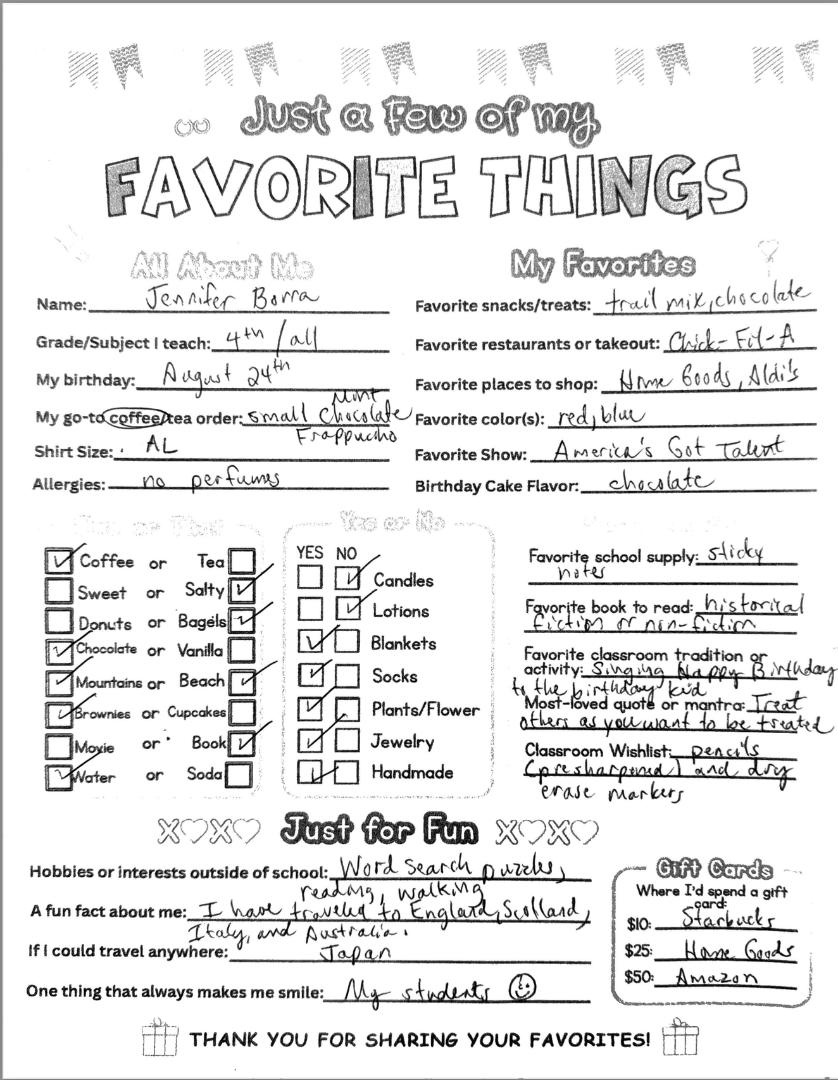 Just a Few of my
FAVORITE THINGS
All About Me
Name: Jennifer Borra
Grade/Subject I teach: 4th / all
My birthday: August 24th
My go-to coffee/tea order: small Mint Chocolate
Frappucino
Shirt Size: AL
Allergies: no perfumes
My Favorites
Favorite snacks/treats: trail mix, chocolate
Favorite restaurants or takeout: Chick-Fil-A
Favorite places to shop: Home Goods, Aldi's
Favorite color(s): red, blue
Favorite Show: America's Got Talent
Birthday Cake Flavor: chocolate
This or That
Coffee or Tea
Sweet or Salty
Donuts or Bagels
Chocolate or Vanilla
Mountains or Beach
Brownies or Cupcakes
Movie or Book
Water or Soda
Yes or No
YES NO
Candles
Lotions
Blankets
Socks
Plants/Flower
Jewelry
Handmade
Favorite school supply: sticky
notes
Favorite book to read: historical
fiction or non-fiction
Favorite classroom tradition or
activity: Singing Happy Birthday
to the birthday kid
Most-loved quote or mantra: Treat
others as you want to be treated
Classroom Wishlist: pencils
(presharpened) and dry
erase markers
XOXO Just for Fun XOXO
Hobbies or interests outside of school: Word Search puzzles,
reading, walking
A fun fact about me: I have traveled to England, Scotland,
Italy, and Australia.
If I could travel anywhere: Japan
One thing that always makes me smile: My students
Gift Cards
Where I'd spend a gift
card:
$10: Starbucks
$25: Home Goods
$50: Amazon
THANK YOU FOR SHARING YOUR FAVORITES!